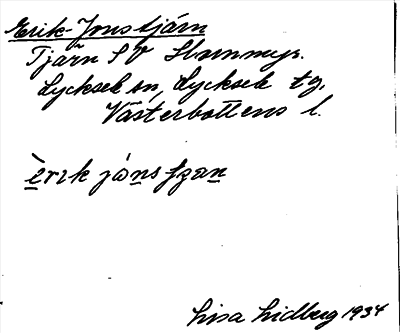 Erik-Jonstjärn
Tjärn S V Stommyr.
Lycksele sn, Lycksele tg,
Västerbottens l.
èrik jóns
Lisa Lidberg 1934